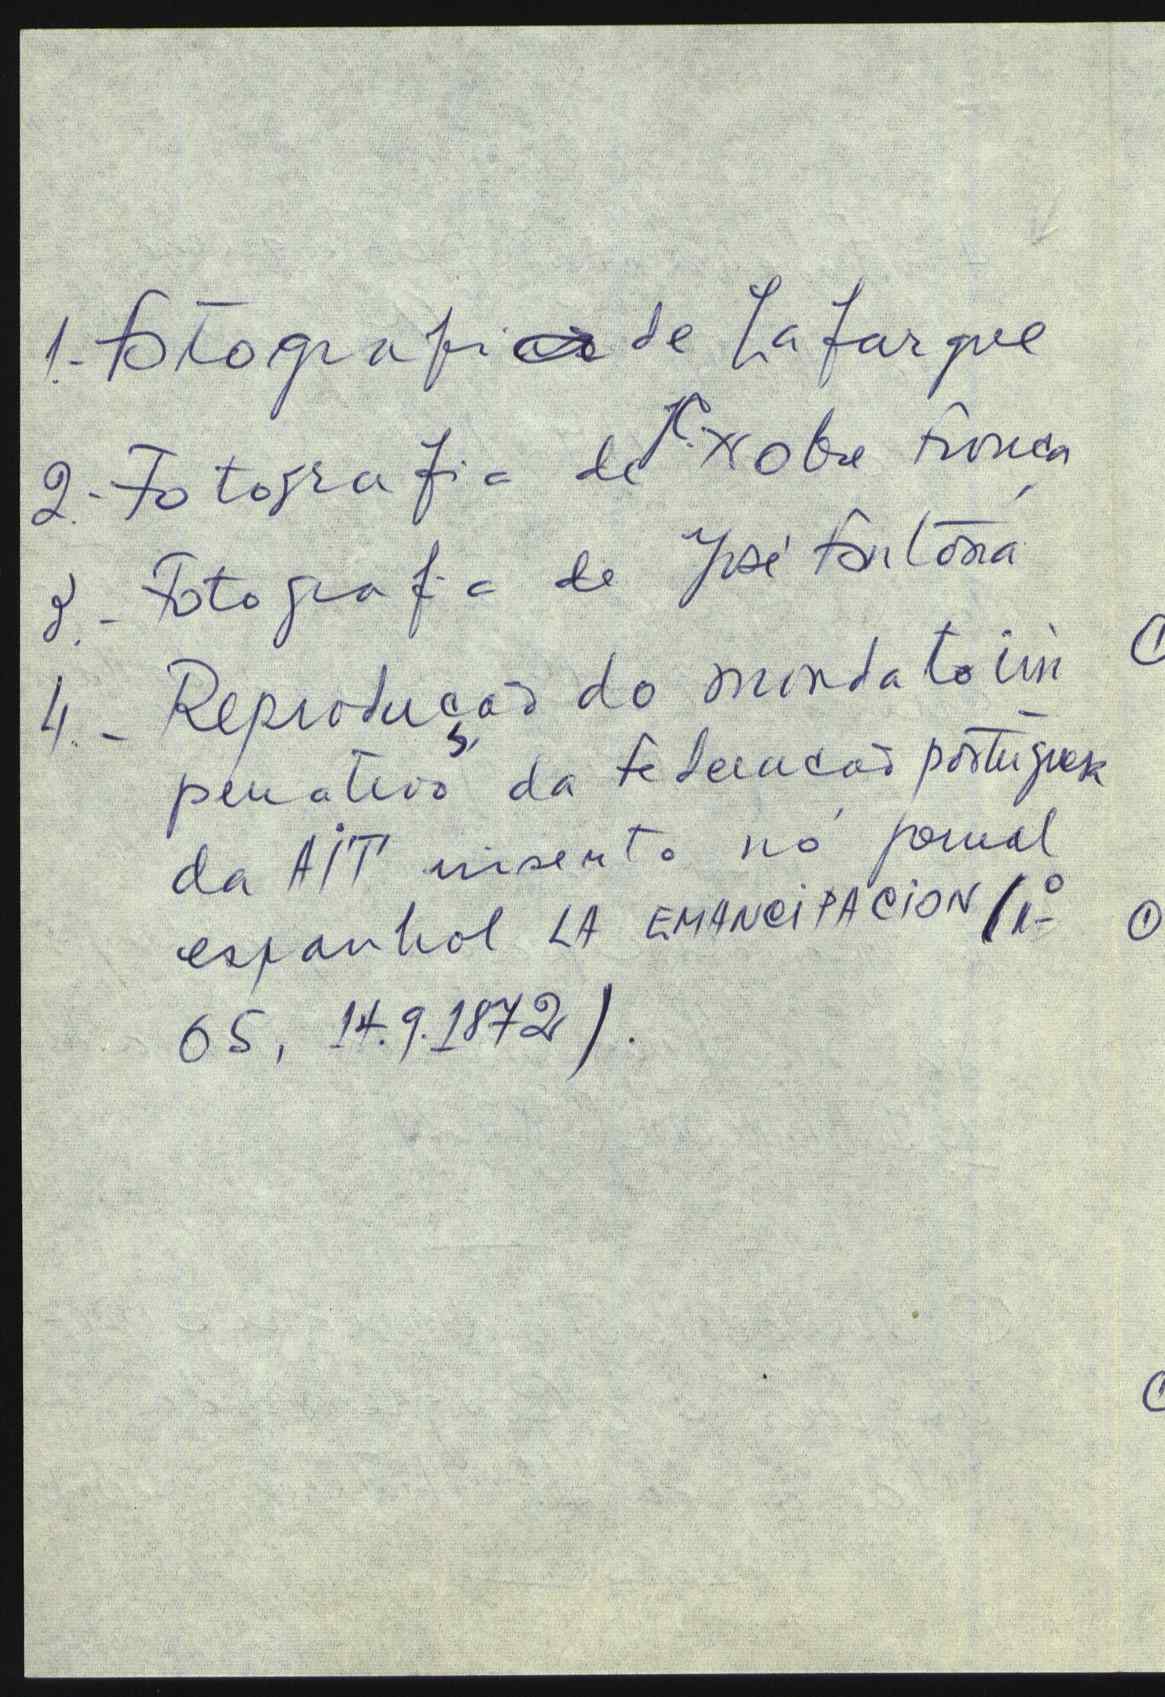 1.- Fotografia de Lafargue
2.- Fotografia de J.C. Nobre França
3.- Fotografia de José Fontana
4.- Reprodução do mandato im
perativo da Federação portuguesa
da AIT inserto no jornal
espanhol LA EMANCIPACION (nº
65, 14.9.1872).